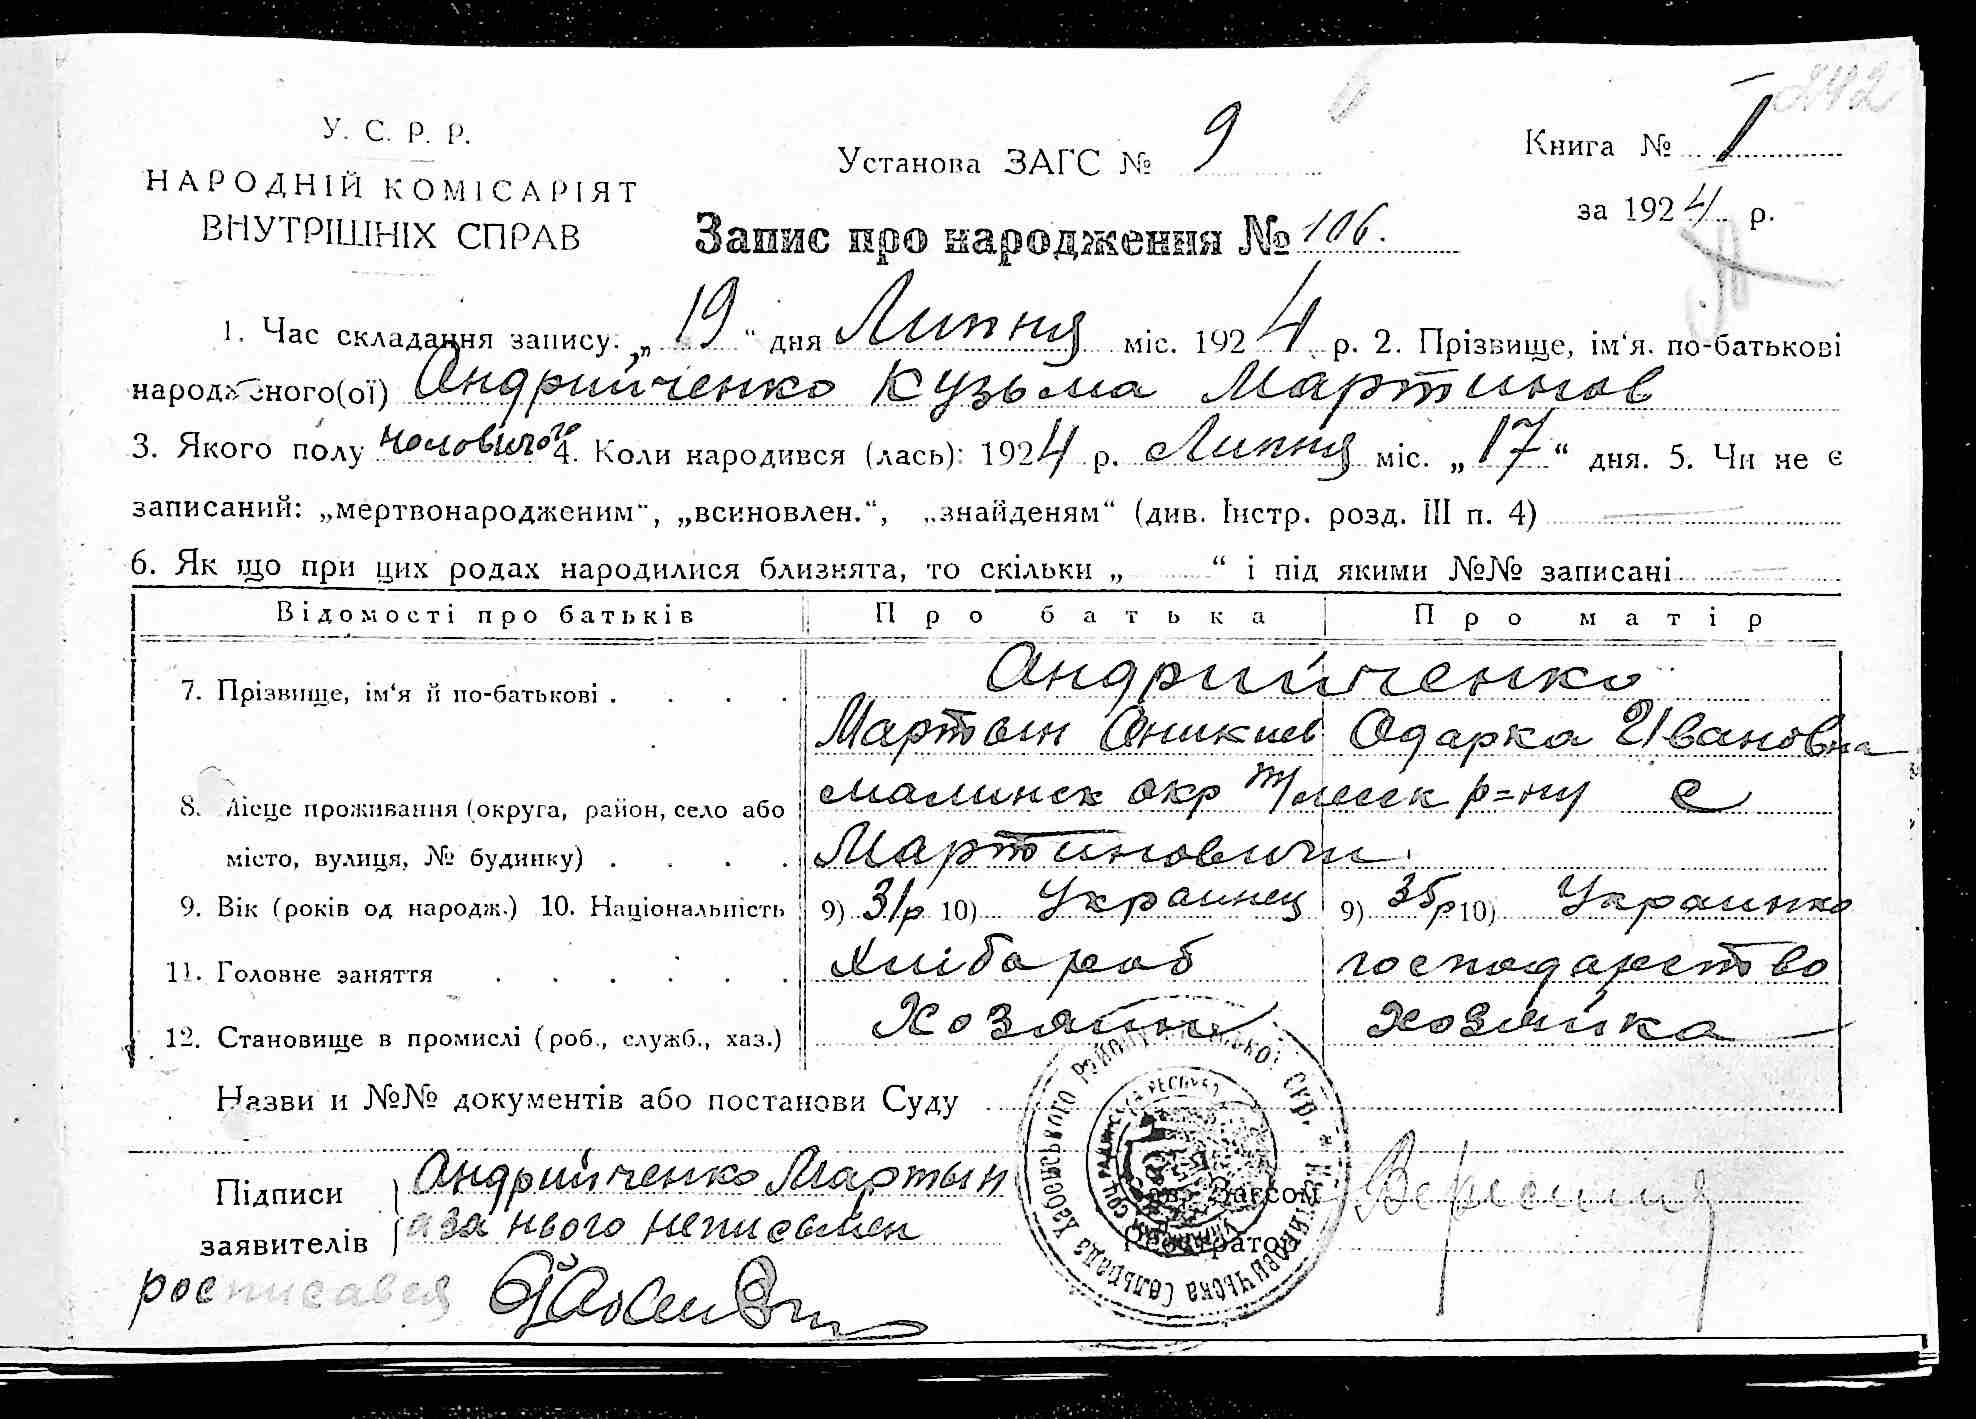 2412
У. С. Р. Р.
НАРОДНІЙ КОМІСАРІЯТ
ВНУТРІШНІХ СПРАВ
Установа ЗАГС № 9
Книга № I
за 1924 р.
Запис про народження № 106.
1. Час складання запису: „19“ дня Липня міс. 1924 р. 2. Прізвище, ім‘я. по-батькові
народженого(ої) Андрийченко Кузьма Мартинов
3. Якого полу чоловичого 4. Коли народився (лась): 1924 р. Липня міс. „17“ дня. 5. Чи не є
записаний: „мертвонародженим“, „всиновлен.“, „знайденям“ (див. Інстр. розд. III п. 4)
6. Як що при цих родах народилися близнята, то скільки „ “ і під якими №№ записані
Відомості про батьків Про батька Про матір
7. Прізвище, ім‘я й по-батькові . . . . Андрийченко
Мартын Оникиев Одарка Ивановна
8. Місце проживання (округа, район, село або малинск окр р=ну с
місто, вулиця, № будинку) . . . . Мартиновичи
9. Вік (років од народж.) 10. Національність 9) 31р 10) Украинец 9) 35р 10) Украинка
11. Головне заняття . . . . . . Хлібороб господарство
12. Становище в промислі (роб., служб., хаз.) Хозяин хозяйка
Назви и №№ документів або постанови Суду
Підписи Андрийченко Мартын
заявителів а за нього неписьмен
росписався
Зав. Загсом
Реєстратор
Мартиновичьска Сельрада Хабенського Району